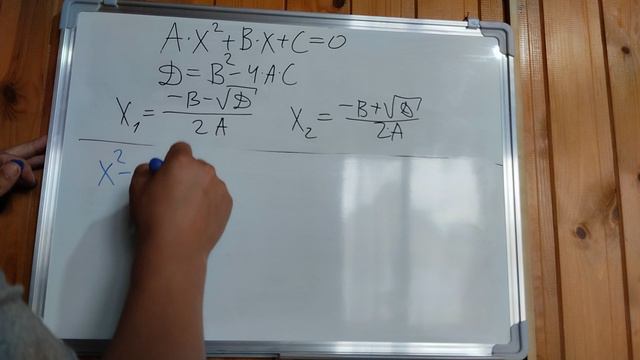 A·X²+B·X+C=0
D=B²-4·A·C
X₁=(-B-√D)/2A X₂=(-B+√D)/2A
X²-